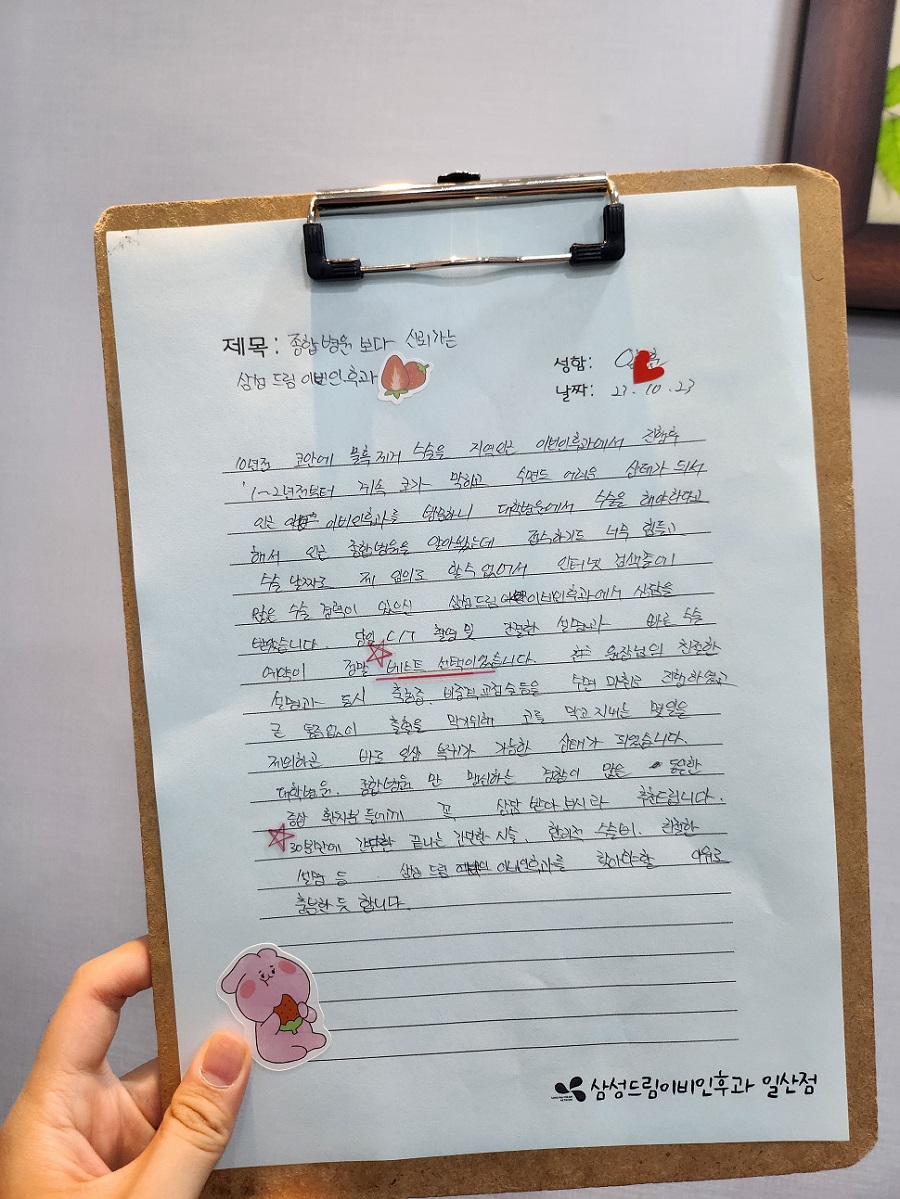 제목: 종합병원 보다 신뢰가는
삼성 드림 이비인후과
성함:
날짜: 23.10.23
10년전 코안에 물혹제거 수술을 지역인근 이비인후과에서 진행후
1~2년전부터 계속 코가 막히고 수면도 어려운 상태가 되서
인근 이비인후과를 방문하니 대학병원에서 수술을 해야한다고
해서 인근 종합병원을 알아봤는데 접수하기도 너무 힘들고
수술 날짜도 제 임의로 할수 없어서 인터넷 검색중에
많은 수술 경력이 있으신 삼성드림이비인후과에서 상담을
받았습니다. 당일 C/T 촬영 및 친절한 설명과 바로 수술
예약이 정말 베스트 선택이었습니다. 원장님의 친절한
설명과 동시 축농증, 비중격교정술등을 수면 마취로 진행하였고
큰 통증없이 출혈을 막기위해 코를 막고 지내는 몇일을
제외하곤 바로 일상 복귀가 가능한 상태가 되었습니다.
대학병원, 종합병원 만 맹신하는 경향이 많은 동일한
증상 환자분들에게 꼭 상담 받아 보시라 추천드립니다.
30분만에 간단한 끝나는 간단한 시술, 합리적 수술비, 친절한
설명 등 삼성 드림 이비인후과를 찾아야할 이유로
충분한듯 합니다.
삼성드림이비인후과 일산점